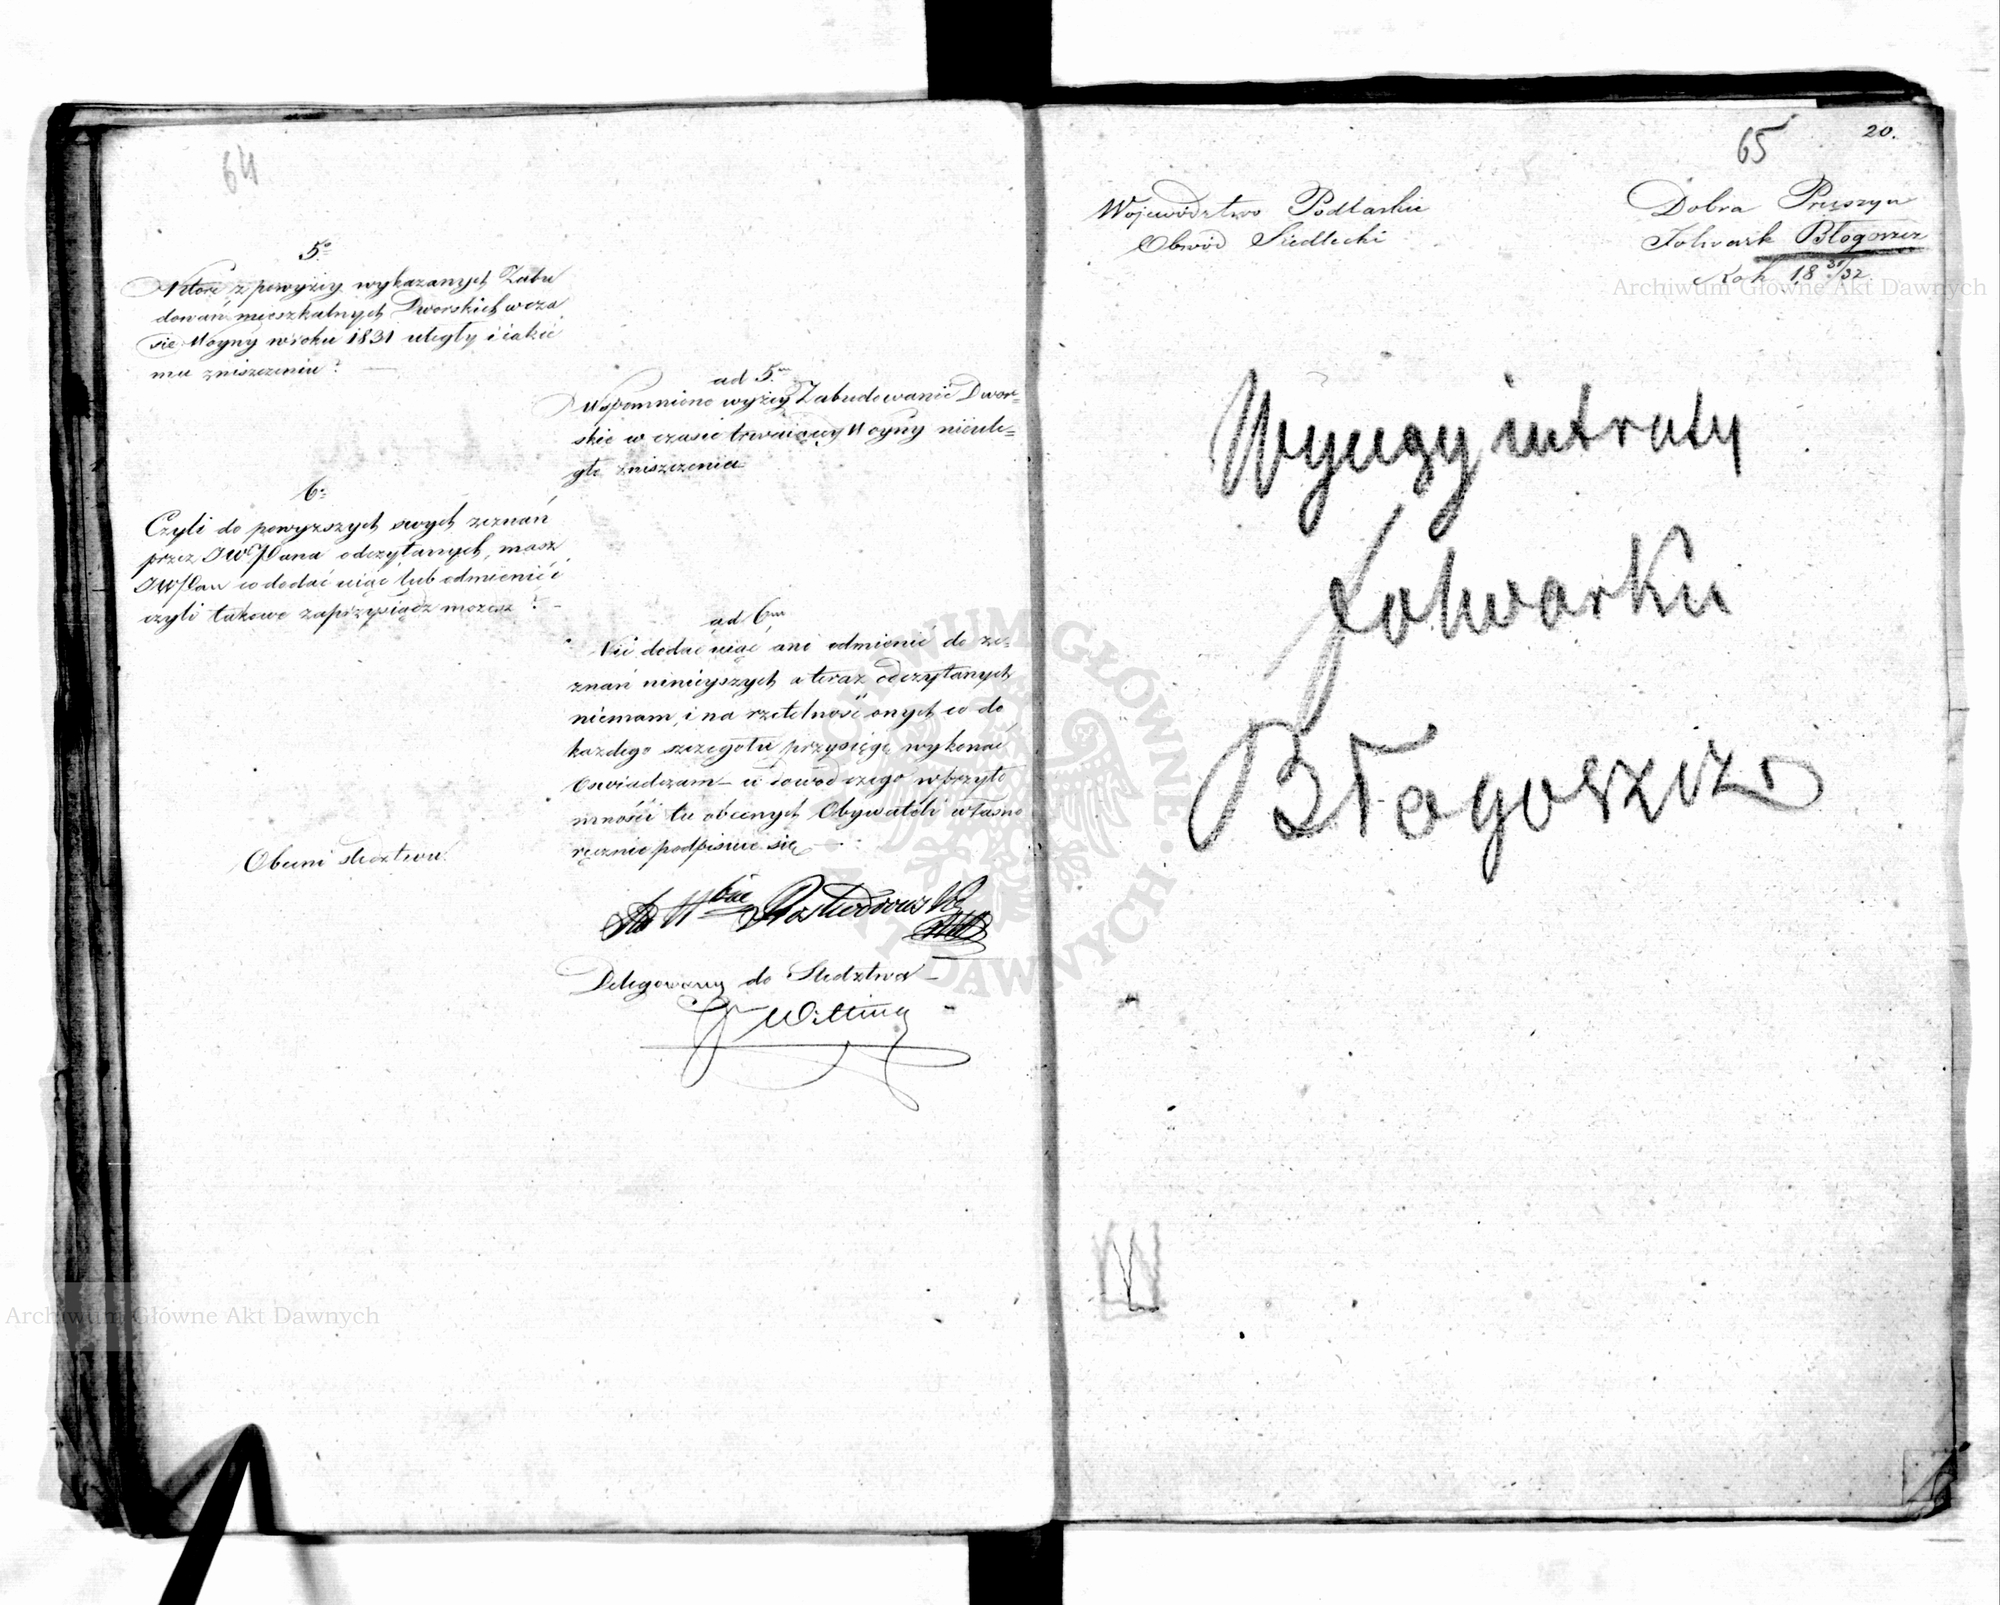 64
5º
Które z powyżey wykazanych Zabu
dowań mieszkalnych Dworskich w cza
sie Woyny w roku 1831 uległy i iakie
mu zniszczeniu?
ad 5m
Wspomnione wyżey Zabudowanie Dwor=
skie w czasie trwaiącey Woyny nieule=
gło zniszczeniu
6º
Czyli do powyższych swych zeznań
przez JW Pana odczytanych, masz
JW Pan co dodać uiąć lub odmienić i
czyli takowe zaprzysiądz możesz?
ad 6m
Nic dodać uiąć ani odmienić do ze=
znań ninieyszych a teraz odczytanych
niemam, i na rzetelność onych co do
każdego szczegołu przysięgę wykonać
oswiadczam – w dowód czego w przyto
mności tu obecnych Obywateli własno
ręcznie podpisuie się
Obecni sledztwu
Delegowany do Sledztwa
Witting
65
20.
Województwo Podlaskie
Obwód Siedlecki
Dobra Pruszyn
Folwark Błogoszcz
Rok 18 31/32
Wyciąg intraty
Folwarku
Błogoszcz
Archiwum Główne Akt Dawnych
Archiwum Główne Akt Dawnych
ARCHIWUM GŁÓWNE AKT DAWNYCH